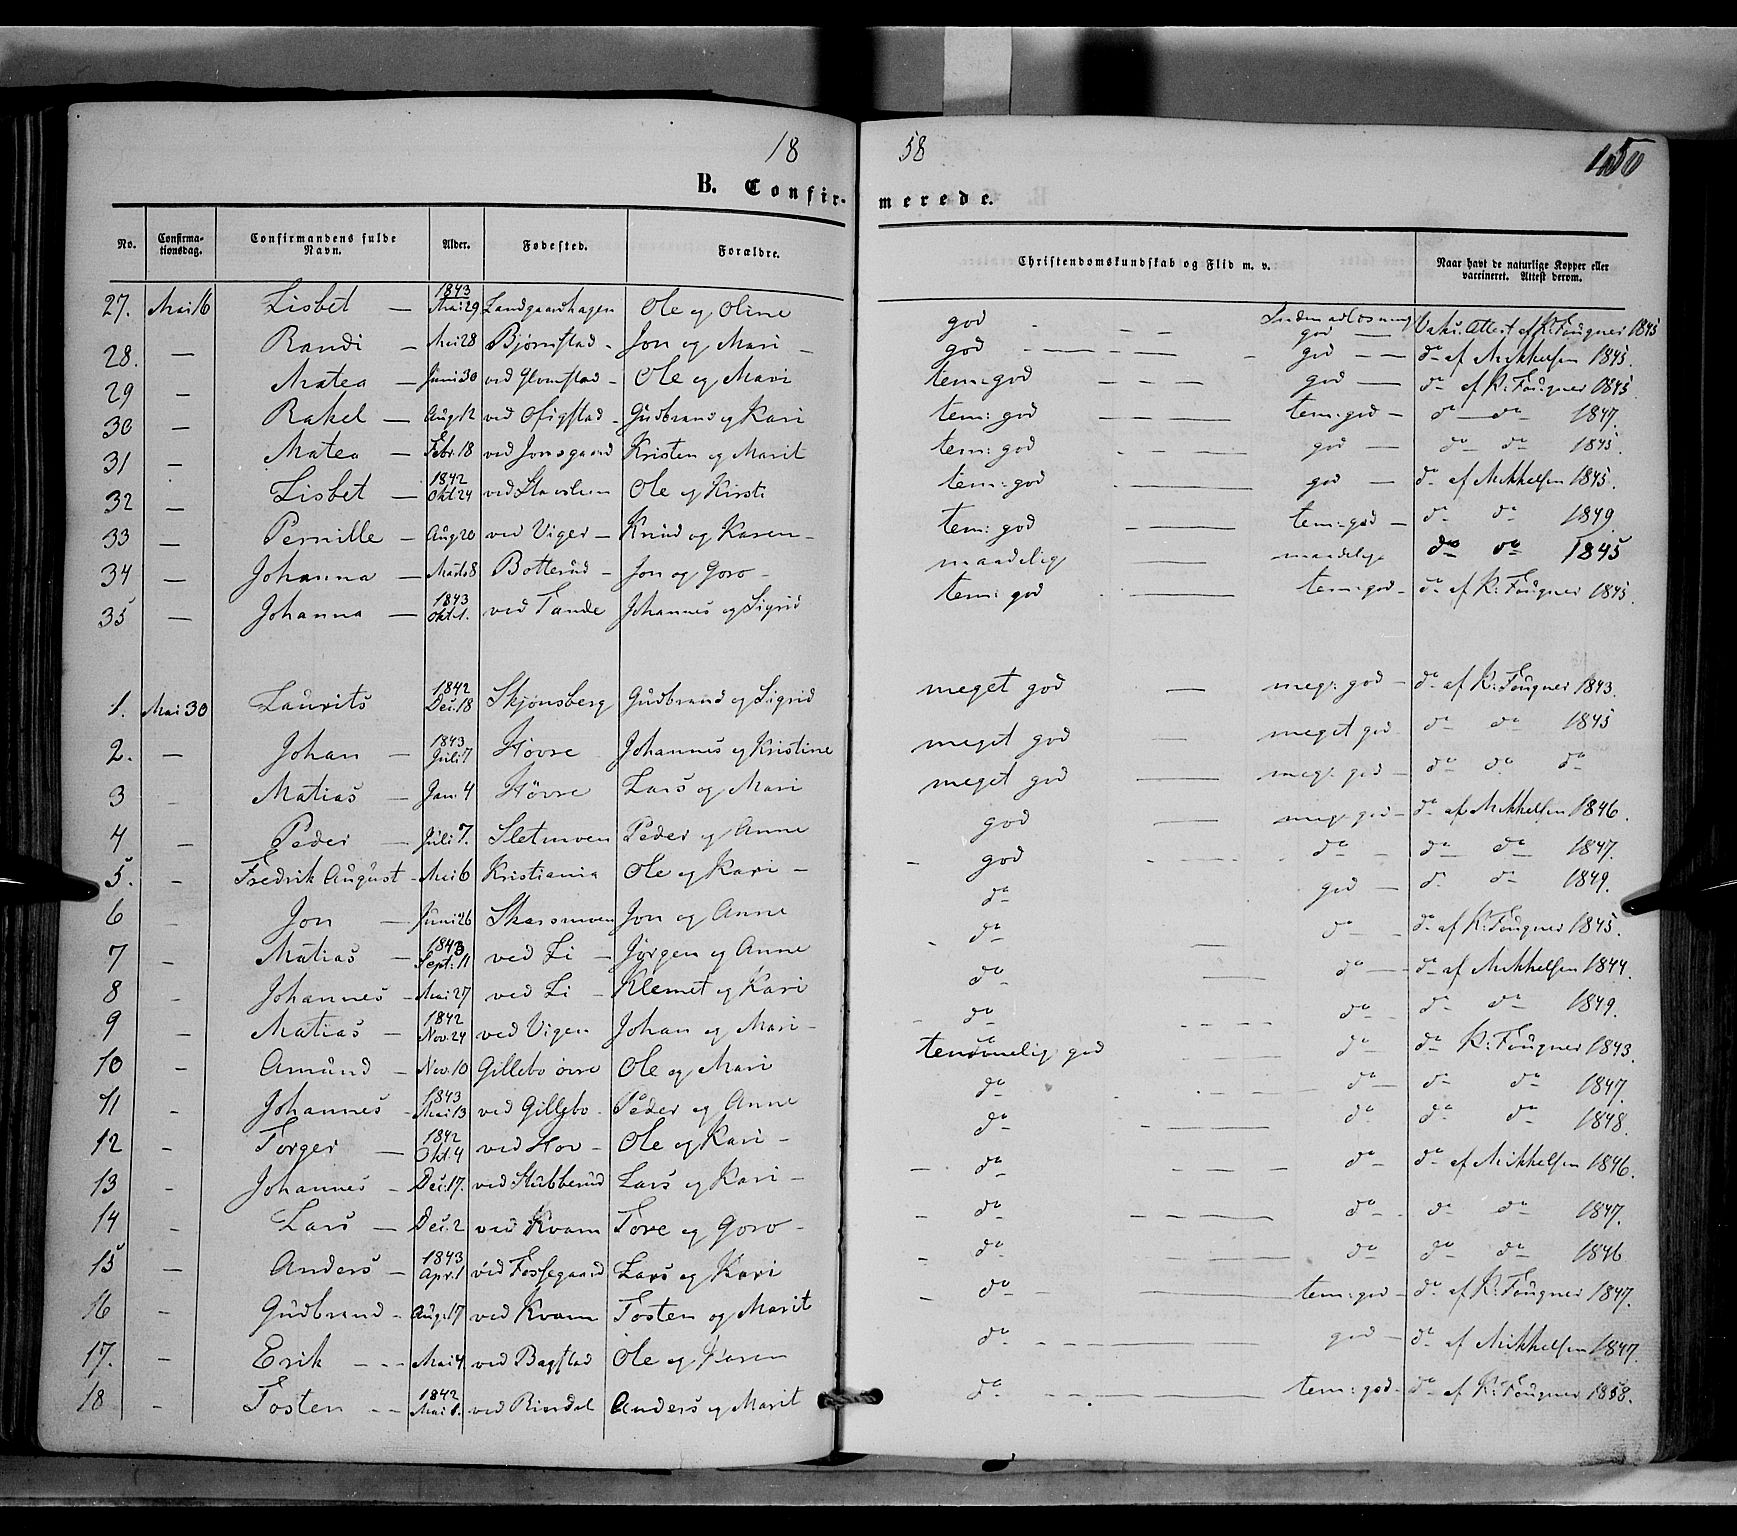 18 58 150
B. Confirmerede.
No. Confirmationsdag. Confirmandens fulde Navn. Alder. Fødested. Forældre. Christendomskundskab og Flid m. v. Naar havt de naturlige Kopper eller vaccineret. Attest derom.
27. Mai 16 Lisbet — 1843 Mai 29 Ole og Oline god - - — god — Attest af K: Fougner 1845
28. — Randi — Mai 28 Bjørnstad - Jon og Mari — god - — - — god - — do af Mikkelsen 1845.
29 — Matea — Juni 30 ved Glomstad - Ole og Mari tem: god — — — god — do af K: Fougner 1845
30 — Rakel — Aug 12 ved Ofigstad - Gudbrand og Kari tem: god — — tem: god - do — do 1847.
31 — Matea — Febr 18 ved Jonsgaard Kristen og Marit tem: god - — — god — do do 1845.
32 — Lisbet — 1842 Okt 24 ved Ole og Kirsti tem: god — — god — do af Mikkelsen 1845.
33 — Pernille — Aug 20 ved Viger — Knud og Karen — tem: god — — tem: god — do do 1849
34 — Johanna — Marts 8 Botterud — Jon og Goro - maadelig — — maadelig do do 1845
35 — Johanna — 1843 Okt 1. ved Tande Johannes og Sigrid tem: god — — tem: god - do af K: Fougner 1845.
1. Mai 30 Laurits 1842 Dec. 18 Skjønsberg Gudbrand og Sigrid meget god — meg: god — do af K: Fougner 1843.
2. — Johan — 1843 Juli 7 Høvre Johannes og Kristine meget god — meget god — do do 1845
3 - Matias — Jan. 4 Høvre Lars og Mari meget god — meg: god — do do do
4 — Peder — Juli 7. Sletmoen Peder og Anne god — meg: god — do af Mikkelsen 1846.
5. - Fredrik August - Mai 6 Kristiania Ole og Kari — god do — do do 1847.
6 - Jon — Juni 26 Skarsmoen Jon og Anne do god — do do 1849.
7 - Matias — 1843 Sept: 11 ved Li — Jørgen og Anne do — do — do af K: Fougner 1845.
8 - Johannes - Mai 27 ved Li — Klemet og Kari do — do — do af Mikkelsen 1844.
9 - Matias — 1842 Nov. 24 ved Vigen Johan og Mari - do - - — do - do do 1849.
10 - Amund — Nov. 10 Gillebo øvre Ole og Mari temmelig god do - do K: Fougner 1843.
11 - Johannes - 1843 Mai 13 ved Gillebo - Peder og Anne do do — do do 1847.
12 - Torger — 1842 Okt. 4 ved Hov - Ole og Kari - do — do do do 1848.
13 - Johannes - Dec. 17. ved Stubberud Lars og Kari - do — do - do af Mikkelsen 1846.
14 - Lars — Dec. 2 ved Kvam Tore og Goro - do — do - do do 1847.
15 — Anders — 1843 Apr. 1 ved Fossegaard Lars og Kari do — do do do 1846
16 - Gudbrand - Aug. 17 ved Kvam Tosten og Marit do — tem: god - do af K: Fougner 1847.
17. — Erik - - - Mai 4. ved Bagstad Ole og Karen do — god — do af Mikkelsen 1847.
18 - Tosten - - 1842 Mai 1. ved Rindal Anders og Marit do — tem: god - do af K: Fougner 1858.